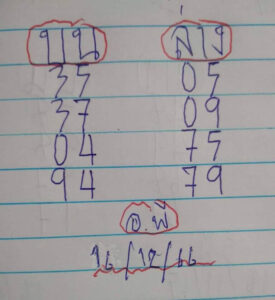 บน ล่าง
35 05
37 09
04 75
94 79
อ.พี
16/12/66